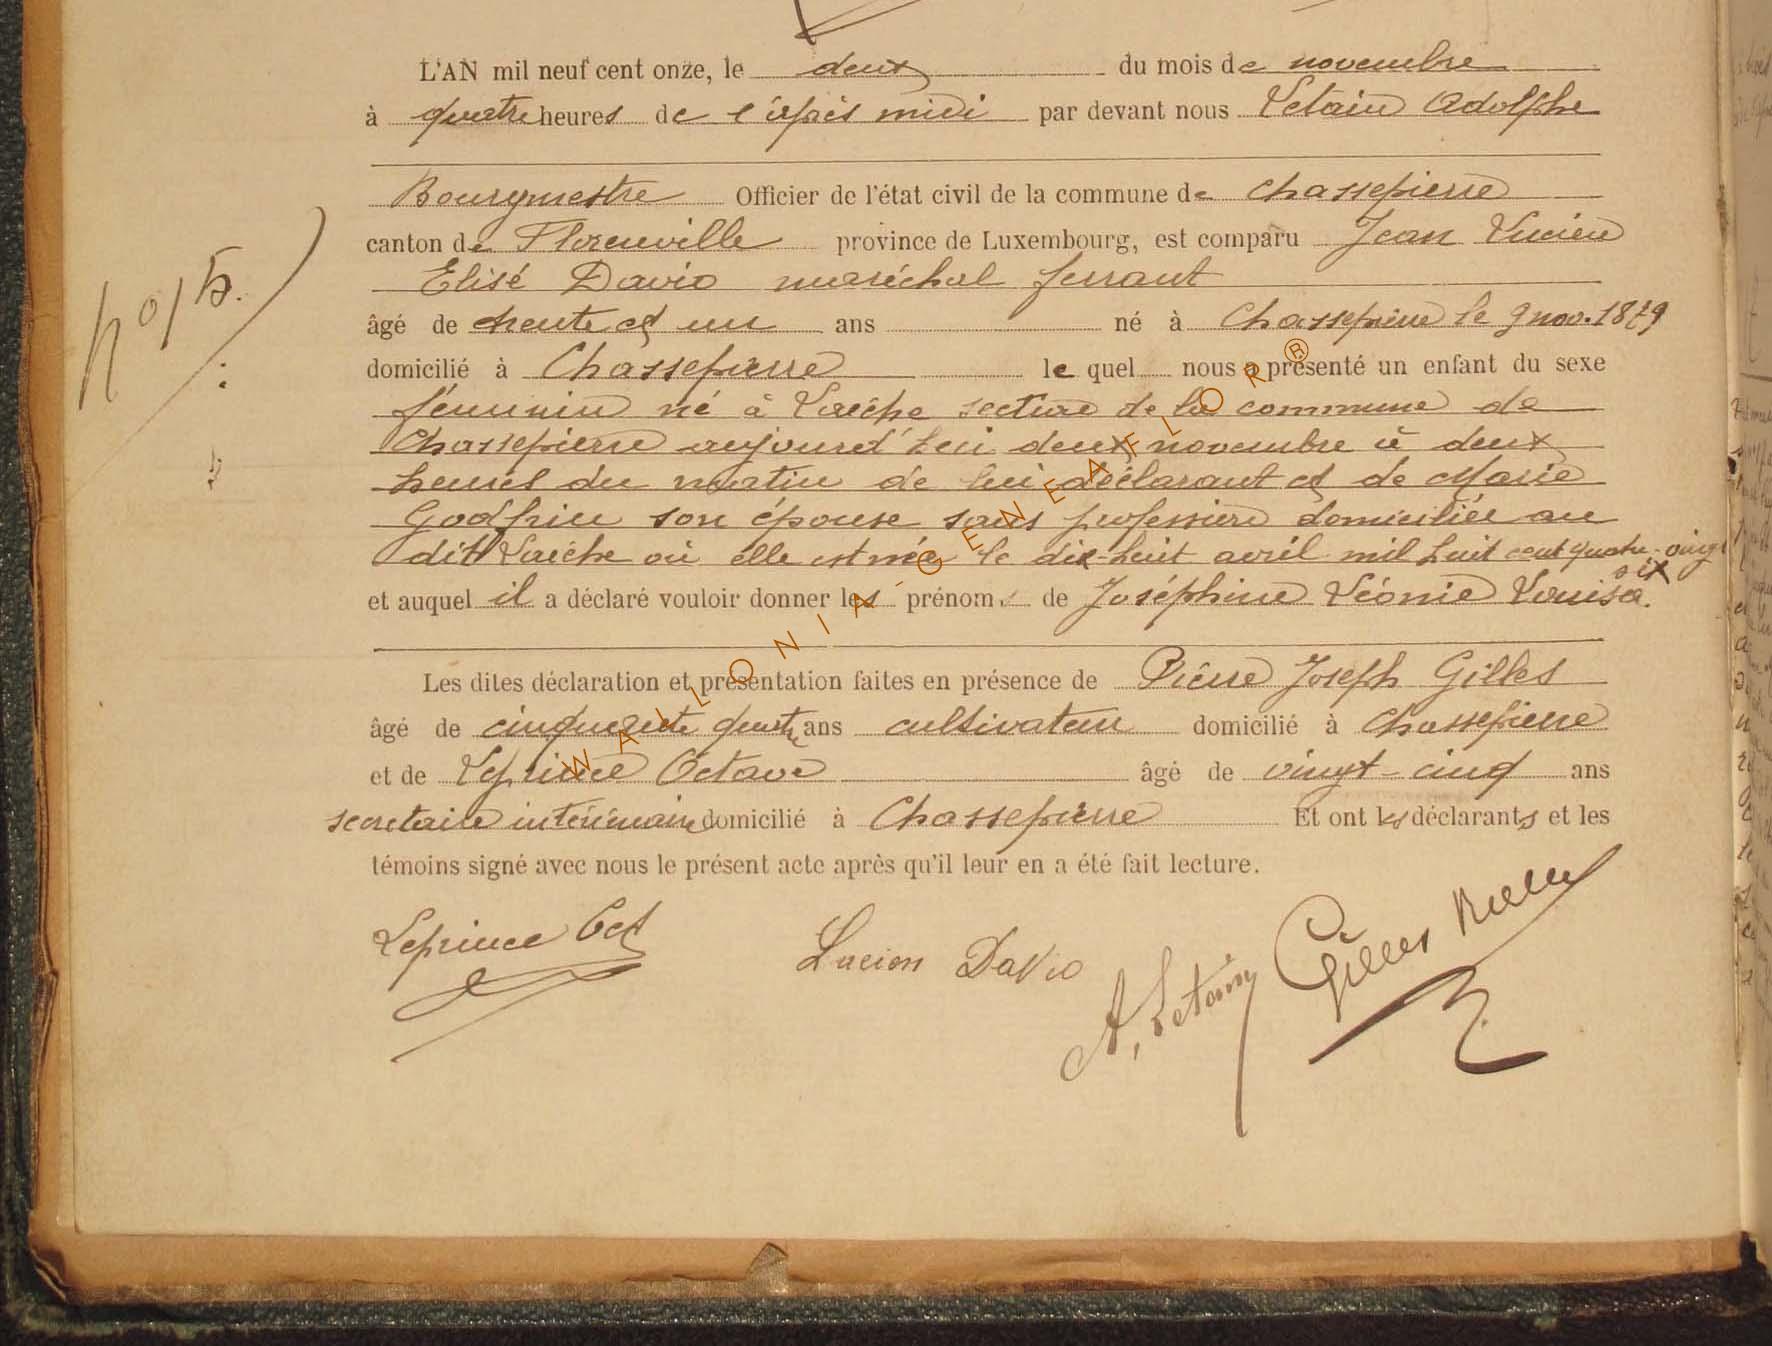 L'AN mil neuf cent onze, le deux du mois de novembre
à quatre heures de l'après midi par devant nous Letain Adolphe
Bourgmestre Officier de l'état civil de la commune de Chassepierre
canton de Florenville province de Luxembourg, est comparu Jean Lucien
Elisé David maréchal ferrant
âgé de trente et un ans né à Chassepierre le 9 nov. 1879
domicilié à Chassepierre le quel nous a présenté un enfant du sexe
féminin né à Laiche section de la commune de
Chassepierre aujourd'hui deux novembre à deux
heures du matin de lui déclarant et de Marie
son épouse sans profession domiciliée au
dit Laiche où elle est née le dix-huit avril mil huit cent quatre-vingt
six
et auquel il a déclaré vouloir donner les prénoms de Joséphine Léonie Louisa.
Les dites déclaration et présentation faites en présence de Pierre Joseph Gilles
âgé de cinquante quatre ans cultivateur domicilié à Chassepierre
et de Leprince Octave âgé de vingt-cinq ans
secretaire intérimaire domicilié à Chassepierre Et ont les déclarants et les
témoins signé avec nous le présent acte après qu'il leur en a été fait lecture.
Leprince Oct
Lucien David
A, Letain
Gilles
No 15.
WALLONIA-GENEAFLOR®